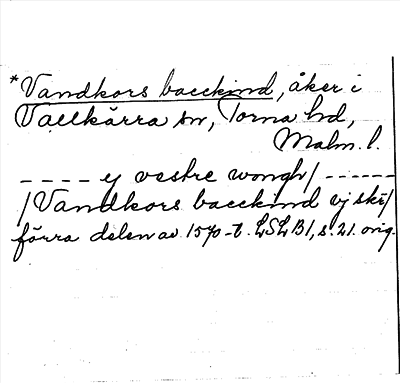 *Vandkors bacckind, åker i
Vallkärra sn, Torna hd,
Malm. l.
---- ej vestre wongh/ -----
/Vandkors bacckind vj skr/
förra delen av 1570-t. LSLB1, s. 21. orig.